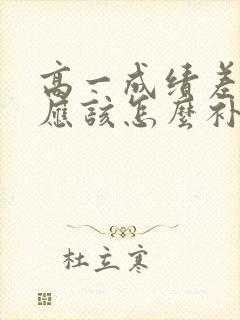 高一成绩差
應該怎麼补
杜立寒